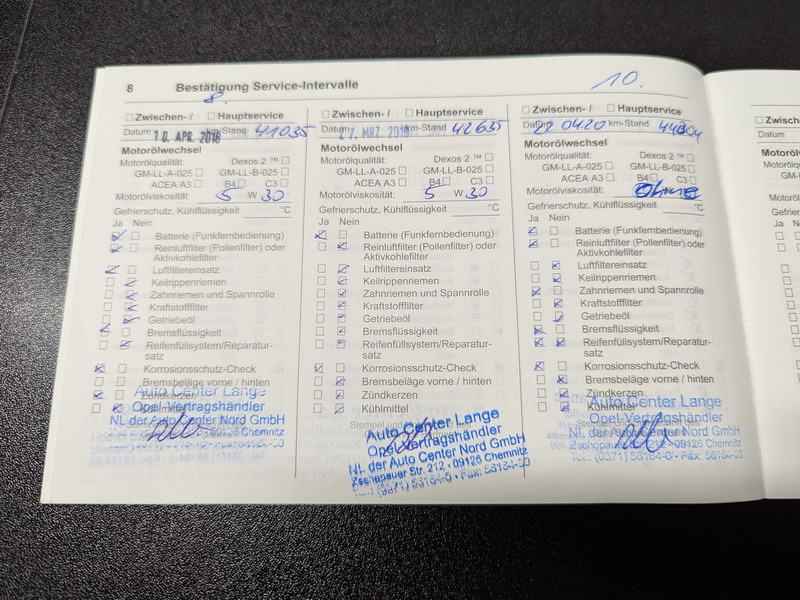 8 Bestätigung Service-Intervalle
8.
10.
Zwischen-/ Hauptservice
Datum 10. APR. 2018 km-Stand 41035
Motorölwechsel
Motorölqualität: Dexos 2 ™
GM-LL-A-025 GM-LL-B-025
ACEA A3 B4 C3
Motorölviskosität: 5 W 30
Gefrierschutz, Kühlflüssigkeit °C
Ja Nein
Batterie (Funkfernbedienung)
Reinluftfilter (Pollenfilter) oder
Aktivkohlefilter
Luftfiltereinsatz
Keilrippenriemen
Zahnriemen und Spannrolle
Kraftstofffilter
Getriebeöl
Bremsflüssigkeit
Reifenfüllsystem/Reparatur-
satz
Korrosionsschutz-Check
Bremsbeläge vorne / hinten
Zündkerzen
Kühlmittel
Auto Center Lange
Opel-Vertragshändler
NL der Auto Center Nord GmbH
09126 Chemnitz
Zwischen-/ Hauptservice
Datum 27. MRZ. km-Stand 42635
Motorölwechsel
Motorölqualität: Dexos 2 ™
GM-LL-A-025 GM-LL-B-025
ACEA A3 B4 C3
Motorölviskosität: 5 W 30
Gefrierschutz, Kühlflüssigkeit °C
Ja Nein
Batterie (Funkfernbedienung)
Reinluftfilter (Pollenfilter) oder
Aktivkohlefilter
Luftfiltereinsatz
Keilrippenriemen
Zahnriemen und Spannrolle
Kraftstofffilter
Getriebeöl
Bremsflüssigkeit
Reifenfüllsystem/Reparatur-
satz
Korrosionsschutz-Check
Bremsbeläge vorne / hinten
Zündkerzen
Kühlmittel
Stempel und
Auto Center Lange
Opel-Vertragshändler
NL der Auto Center Nord GmbH
Zschopauer Str. 212 · 09126 Chemnitz
Tel.: (0371) 56164-0 · Fax: 56164-50
Zwischen-/ Hauptservice
Datum 22 04.20 km-Stand
Motorölwechsel
Motorölqualität: Dexos 2 ™
GM-LL-A-025 GM-LL-B-025
ACEA A3 B4 C3
Motorölviskosität: Ohne
Gefrierschutz, Kühlflüssigkeit °C
Ja Nein
Batterie (Funkfernbedienung)
Reinluftfilter (Pollenfilter) oder
Aktivkohlefilter
Luftfiltereinsatz
Keilrippenriemen
Zahnriemen und Spannrolle
Kraftstofffilter
Getriebeöl
Bremsflüssigkeit
Reifenfüllsystem/Reparatur-
satz
Korrosionsschutz-Check
Bremsbeläge vorne / hinten
Zündkerzen
Kühlmittel
Auto Center Lange
Opel-Vertragshändler
NL der Auto Center Nord GmbH
Zschopauer Str. 212 · 09126 Chemnitz
Tel.: (0371) 56164-0 · Fax: 56164-50
Zwischen-/
Datum
Ja Nein